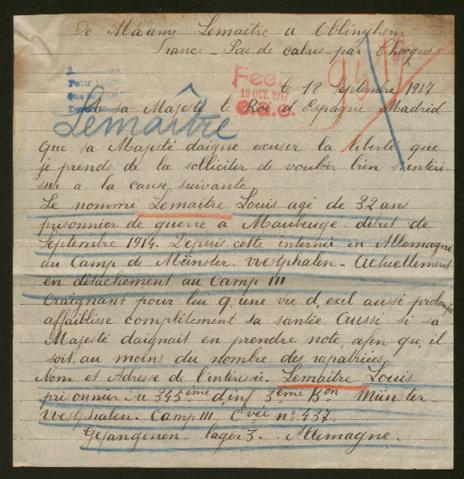 De Mâame Lemaitre a Oblinghem
France - Pas de calais - par Chocques
le 12 Septembre 1917
A
Pour
Que
19 OCT. 1917
A sa Majesté le Roi d'Espagne Madrid
Lemaître
Que sa Majesté daigne excuser la liberté que
je prends de la solliciter de vouloir bien s'intéres
ser a la cause suivante
Le nommé Lemaitre Louis agé de 32 ans
prisonnier de guerre a Maubeuge - début de
Septembre 1914. Depuis cette internée en Allemagne
au Camp de Münster. westphalen - Actuellement
en détachement au Camp III
Craignant pour lui q'une vie d'exil aussi prolongée
affaiblisse complètement sa santée Aussi si sa
Majesté daignait en prendre note, afin qu'il
soit au moins du nombre des rapatriées
Nom et Adresse de l'interéssée. Lemaitre Louis
prisonnier au 345ème d'inf 3ème Bon Münster -
westphalen. Camp III Cvée n° 437.
Gefangenen - lager 3. Allemagne.